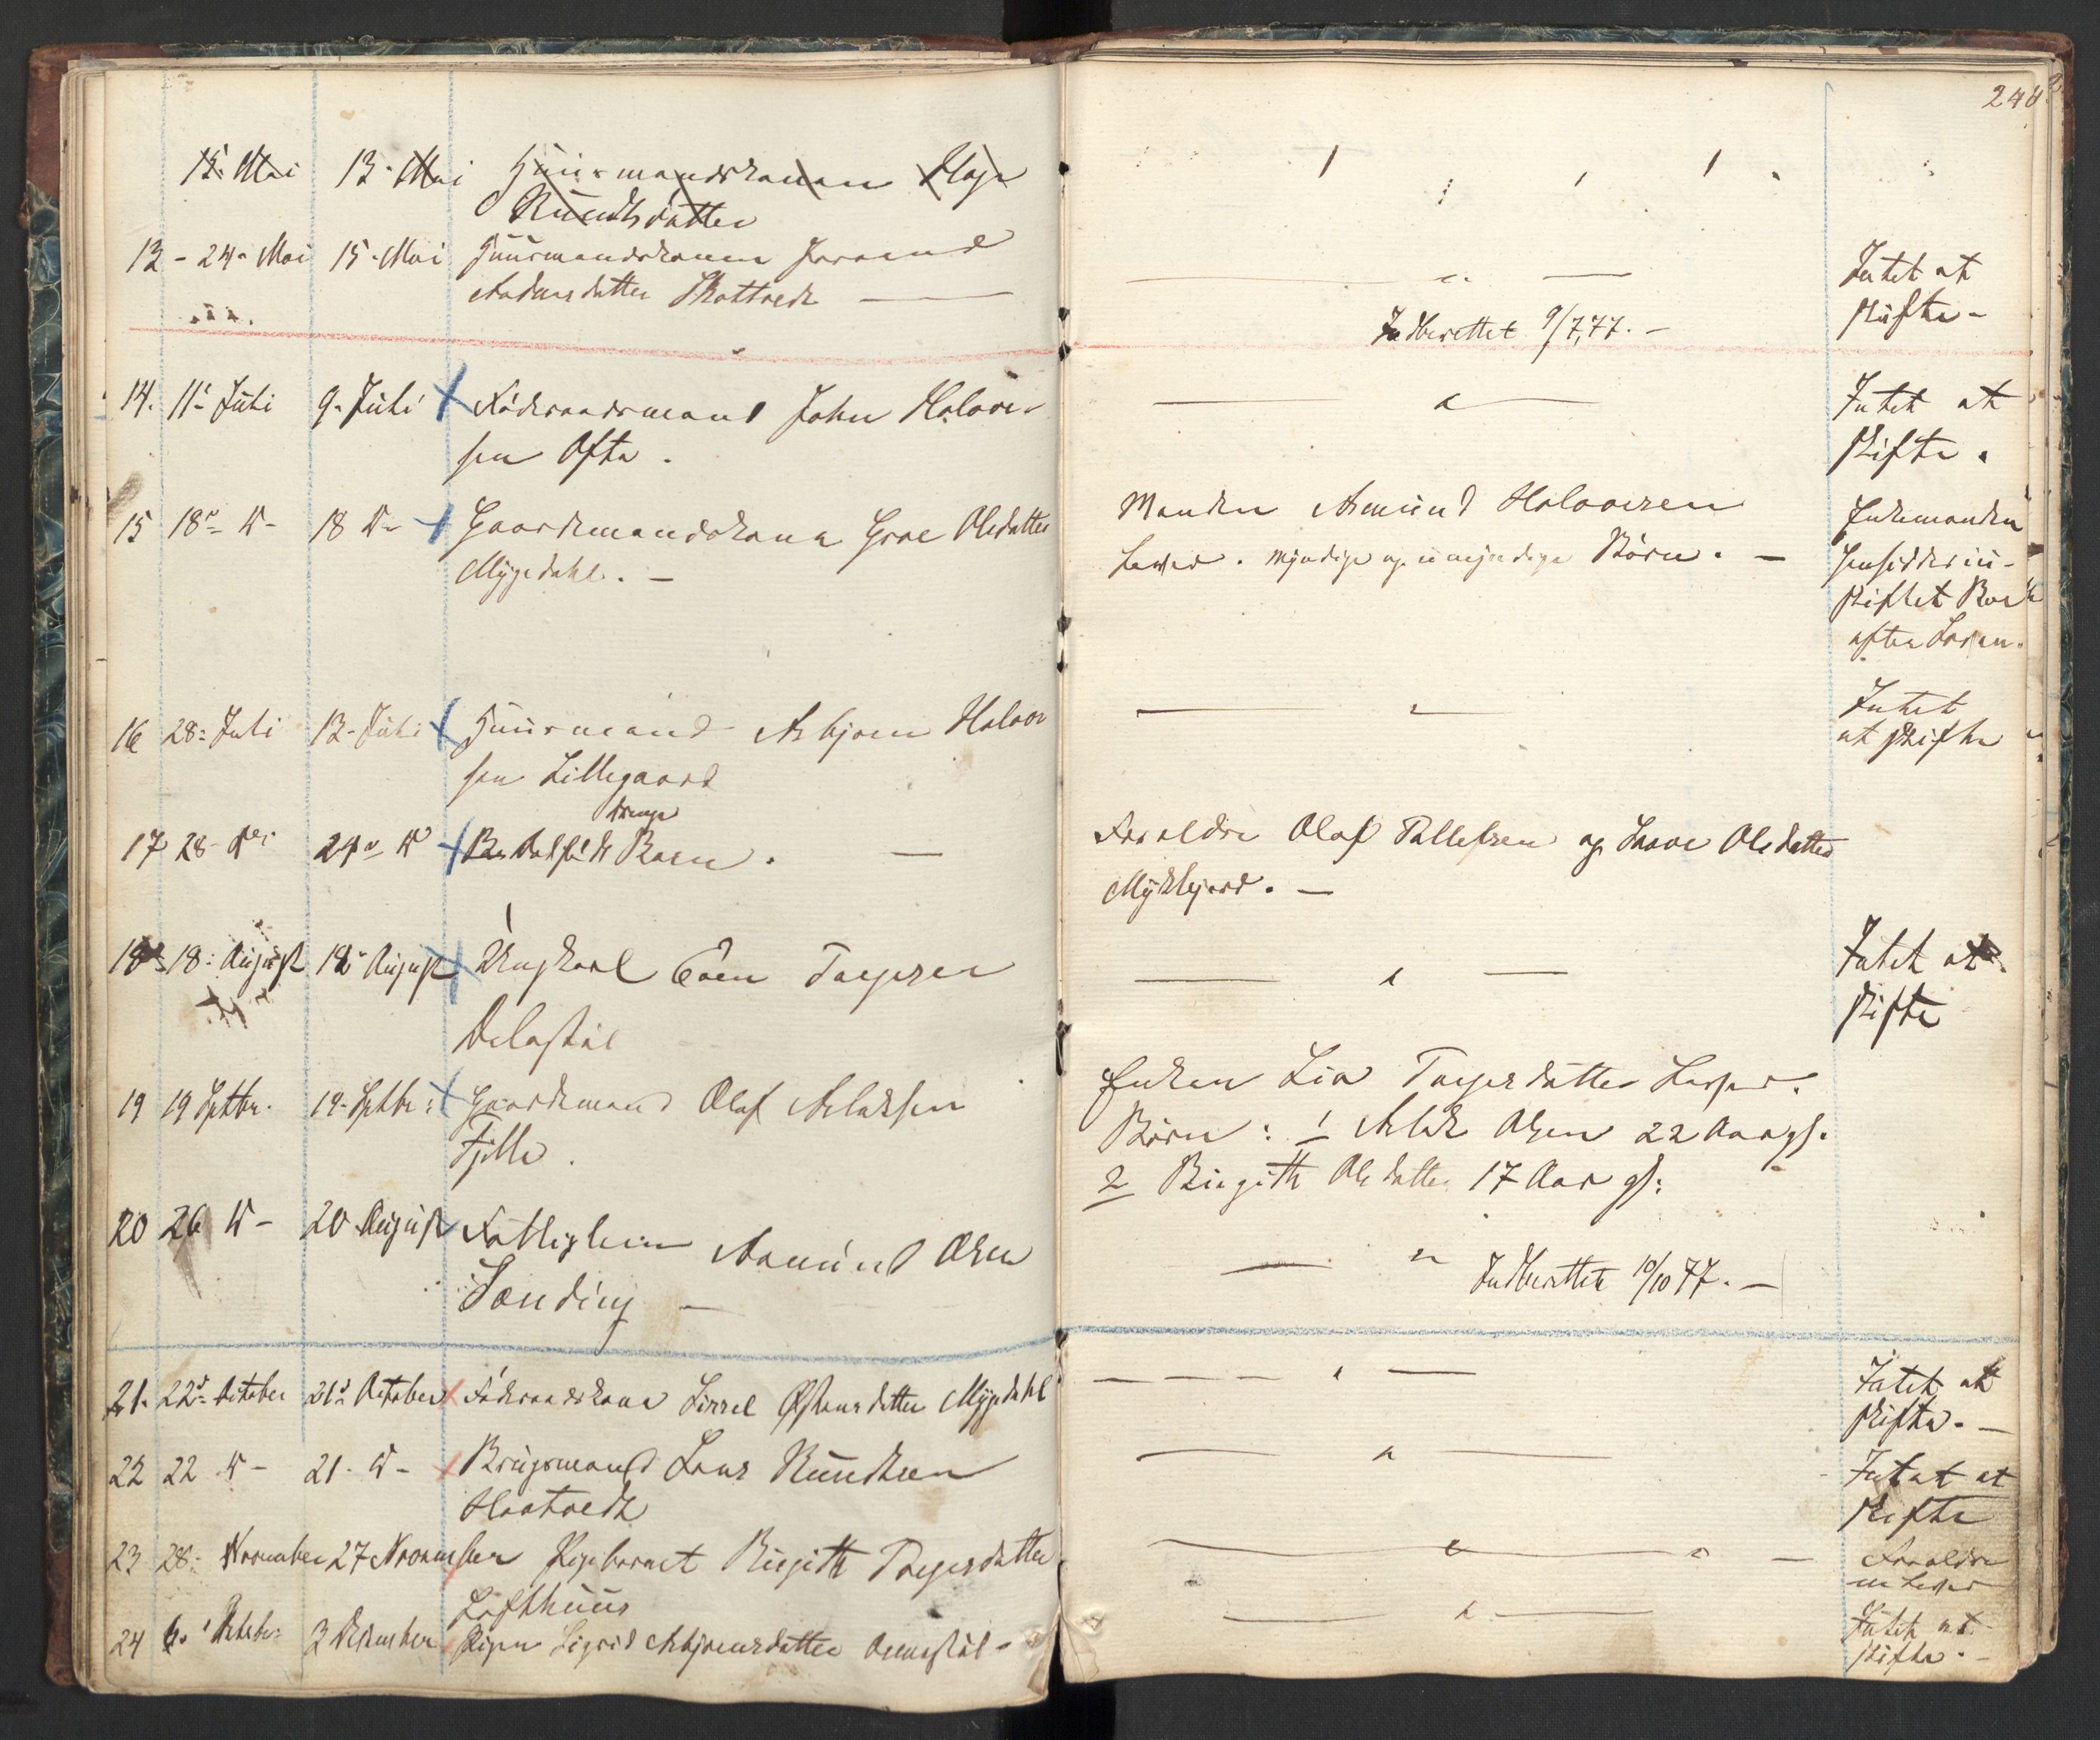 248
15. Mai 13. Mai Huusmandskonen
Knudsdatter
13 - 24. Mai 15. Mai Huusmandskonen
Andersdatter Skottvedt — Intet at
skifte -
Indberettet 9/7,77. -
14. 11. Juli 9. Juli Føderaadsmand John Halvor-
sen Ofte. Intet at
skifte.
15 18. D- 18 D- Gaardmandskone Groe Olsdatter
Mygedahl. -
Manden Asmund Halvorsen
Lever. Myndige og umyndige Børn. -
Enkemanden
hensidder i u-
skiftet Bo
efter Loven.
16 28. Juli 13. Juli Huusmand Asbjørn Halvor
sen Lillegaard
Intet
at skifte
17 28 D 24 D Drenge
Dødfødt Barn. -
Forældre Olaf Tallefsen og Olsdatter
Myklejord. -
18 18. August 18. August Ungkarl Even Targesen
Dalastøl
Intet at
skifte
19 19 Septbr. 19. Septbr. Gaardmand Olaf Aslaksen
Fjelle.
Enken Liv Targesdatter Lever.
Børn: 1 Aslak Olsen 22 Aar gl.
2 Birgith Olsdatter 17 Aar gl:
20 26 D- 20 August Fattiglem Aamund Olsen
Sanding -
Indberettet 10/10 77. -
21. 22. October 21. October Føderaadskone Sissel Østensdatter Mygedahl
Intet at
skifte. -
22 22 D- 21. D- Brugsmand Lars Knudsen
Haatvedt
Intet at
skifte
23 28. November 27 November Pigebarnet Birgith Targesdatter
Lofthuus
Forældre
ne Lever
24 6. Decbr. 2 December Pigen Sigrid Asbjørnsdatter
Intet at
skifte. -